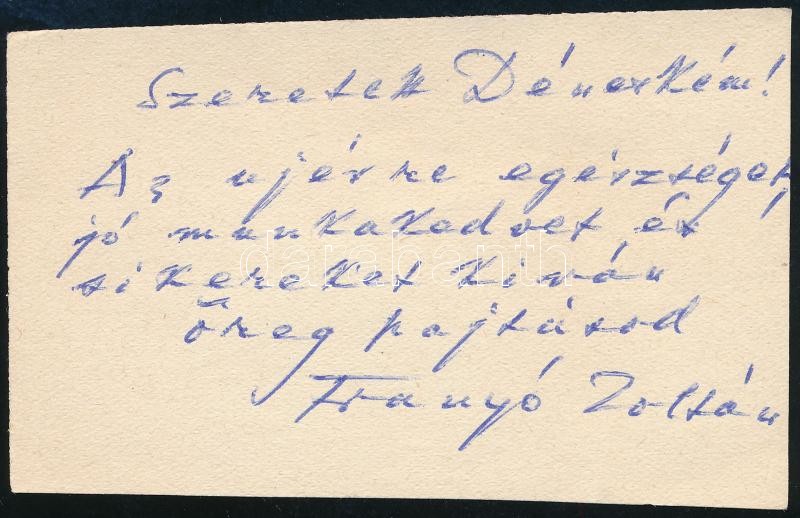 Szeretett Déneském!
Az ujévre egészséget,
jó munkakedvet és
sikereket kiván
öreg pajtásod
Franyó Zoltán
darabanth